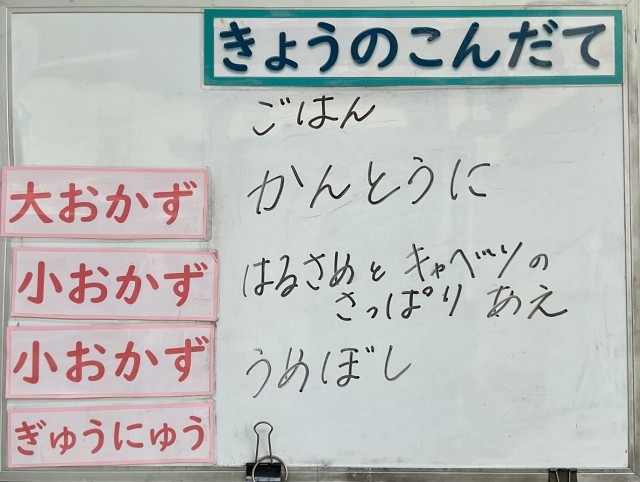 きょうのこんだて
ごはん
大おかず かんとうに
小おかず はるさめと キャベツの
さっぱり あえ
小おかず うめぼし
ぎゅうにゅう